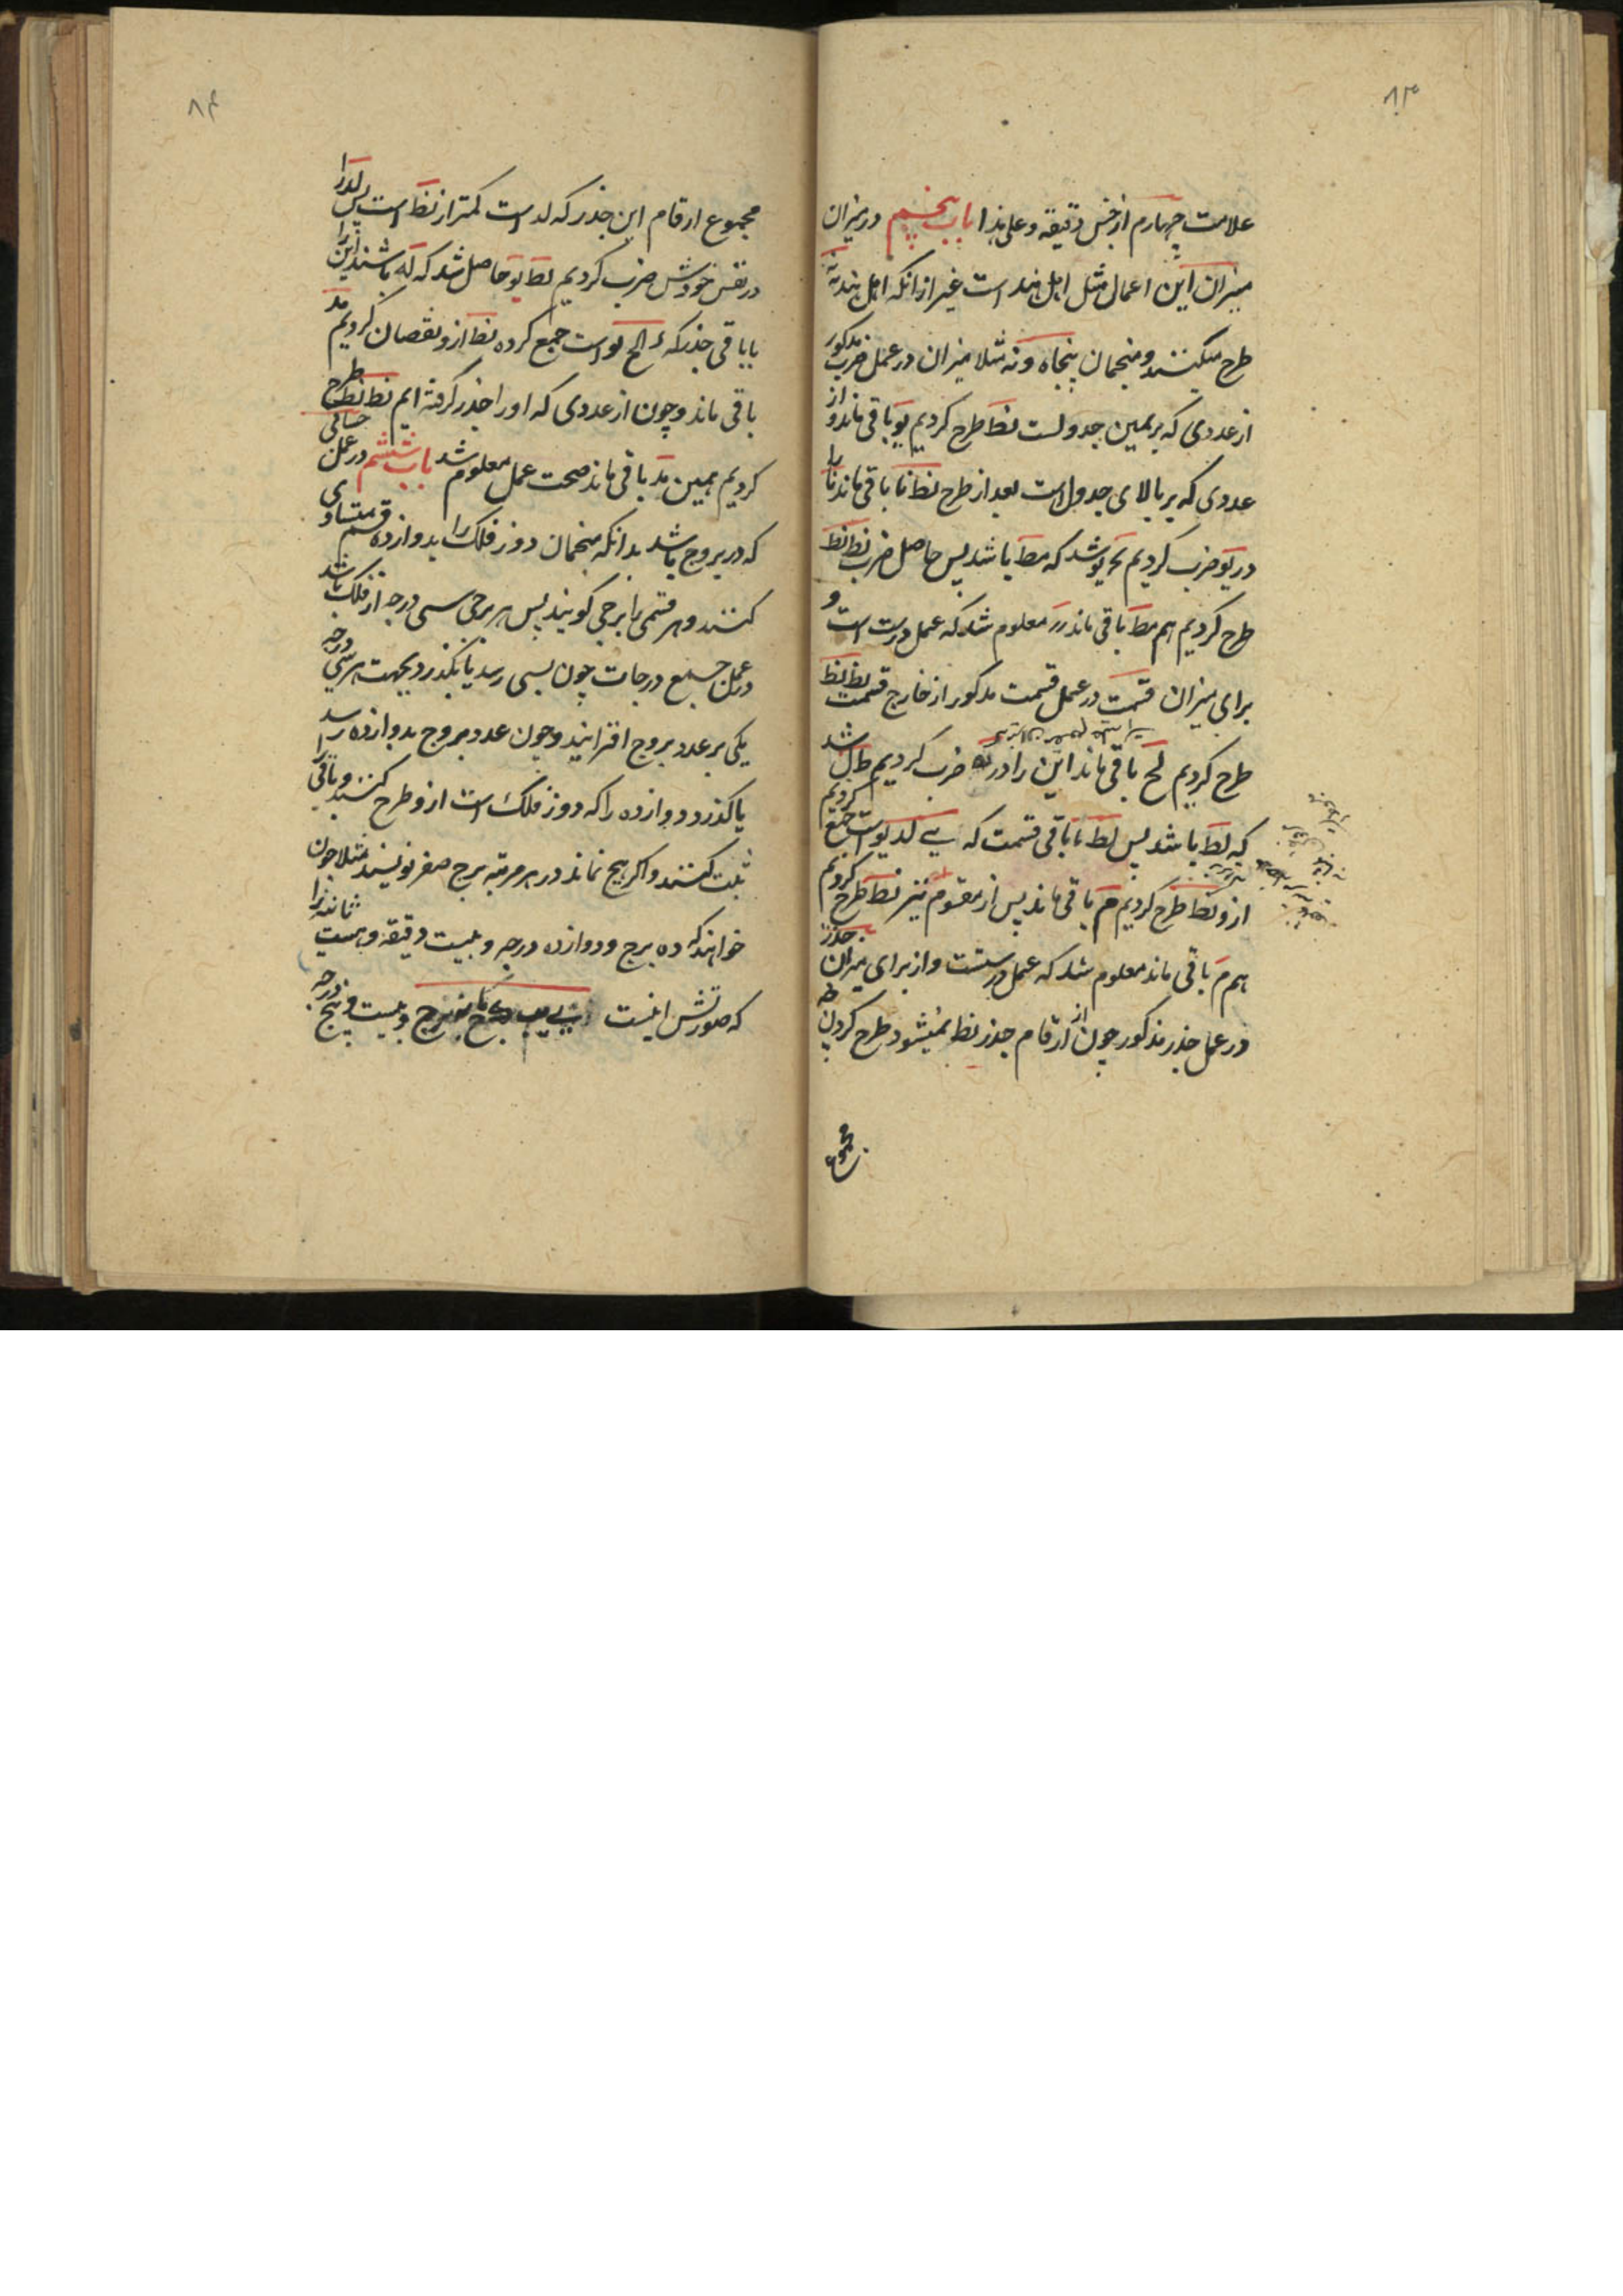 ۸۳
علامت چهارم از جنس دقیقه و علی هذا باب پنجم در میزان
میزان این اعمال مثل اهل هند است غیر از آنکه اهل هند نه نه
طرح میکنند و منجمان پنجاه و نه مثلا میزان در عمل ضرب مذکور
از عددی که بر یمین جدولست نط طرح کردیم یو باقی ماند و از
عددی که بر بالای جدول است بعد از طرح نط نا باقی ماند نا را
در یو ضرب کردیم شد که مط باشد پس حاصل ضرب نط نط
طرح کردیم هم مط باقی ماند معلوم شد که عمل درست است و
برای میزان قسمت در عمل قسمت مذکور از خارج قسمت نط نط
طرح کردیم لح باقی ماند این را در ضرب کردیم شد
که لط باشد پس لط با باقی قسمت که یے لد یو است جمع کردیم
ازو نط طرح کردیم م باقی ماند پس از مقسوم نیز نط طرح کردیم
هم م باقی ماند معلوم شد که عمل درستست و از برای میزان جذر
در عمل جذر مذکور چون از ارقام جذر نط نمیشود طرح کردن
مجموع
۸۴
مجموع ارقام این جذر که لد است کمتر از نط است پس لد را
در نفس خودش ضرب کردیم لط یو حاصل شد که له باشند این را
با باقی جذر که است جمع کرده نط ازو نقصان کردیم مد
باقی ماند و چون از عددی که او را جذر گرفته ایم نط نط طرح
کردیم همین مد باقی ماند صحت عمل معلوم شد باب ششم در عمل
که در بروج باشد بدانکه منجمان دور فلک را بدوازده قسم متساوی
کنند و هر قسمی را برجی گویند پس هر برجی سی درجه از فلک باشد
در عمل جمع درجات چون بسی رسد یا بگذرد بجهت هر سی درجه
یکی بر عدد بروج افزایند و چون عدد بروج بدوازده رسد
یا گذرد دوازده را که دور فلک است ازو طرح کنند و باقی را
ثبت کنند و اگر هیچ نماند در هر مرتبه برج صفر نویسند مثلا چون
خواهند که ده برج و دوازده درجه و بیست دقیقه و بیست ثانیه را
که صورتش اینست برج و بیست و پنج درجه